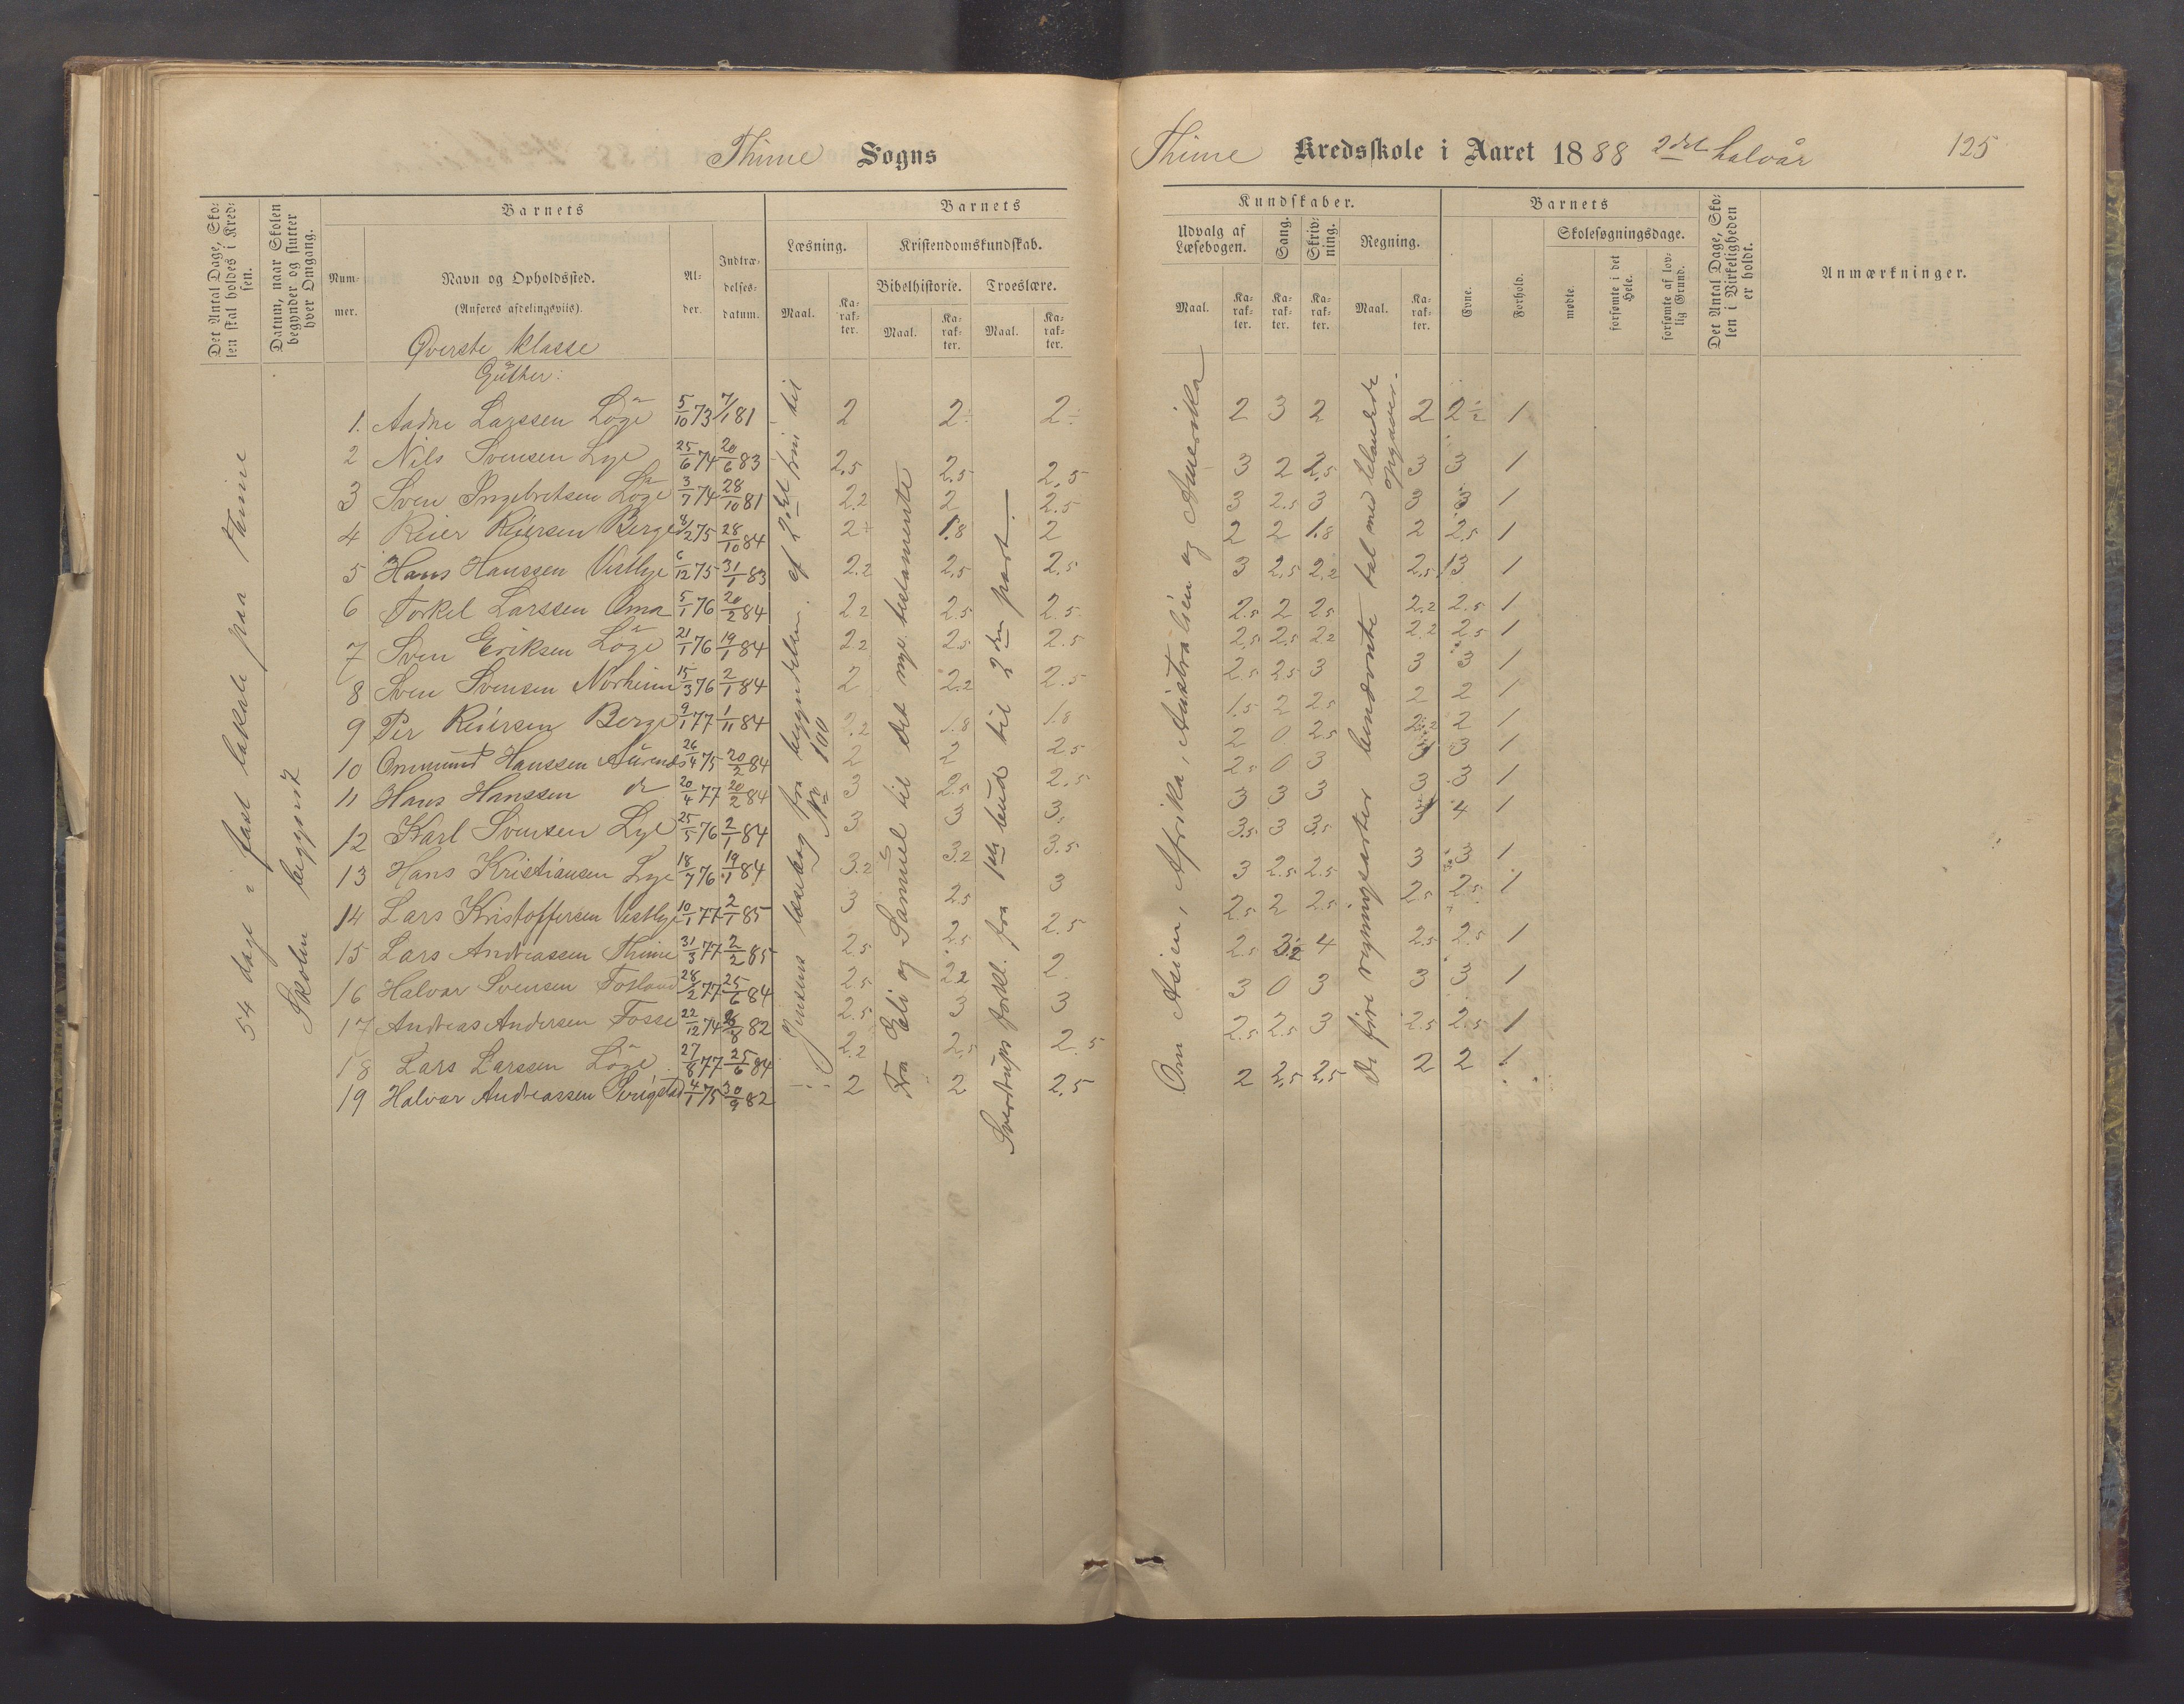 Thime Sogns
Thime Kredsskole i Aaret 1888 2det halvår 125
Det Antal Dage, Skolen skal holdes i Kredsen.
Datum, naar Skolen begynder og slutter hver Omgang.
Barnets
Nummer.
Navn og Opholdssted.
(Anføres afdelingsviis).
Alder.
Indtrædelsesdatum.
Barnets
Læsning.
Maal.
Karakter.
Kristendomskundskab.
Bibelhistorie.
Maal.
Karakter.
Troeslære.
Maal.
Karakter.
Kundskaber.
Udvalg af Læsebogen.
Maal.
Karakter.
Sang.
Karakter.
Skrivning.
Karakter.
Regning.
Maal.
Karakter.
Barnets
Evne.
Forhold.
Skolesøgningsdage.
mødte.
forsømte i det Hele.
forsømte af lovlig Grund.
Det Antal Dage, Skolen i Virkeligheden er holdt.
Anmærkninger.
Øverste klasse
Gutter:
54 dage i fast lokale paa Thime
Skolen begyndt
Jensens læsebog fra begyndelsen af 2det trin til No 100
Fra Eli og Samuel til det nye testamente
Sverdrups forkl. fra 1ste bud til 2den part
Om Asien, Afrika, Australien og Amerika
De fire regningsarter benævnte tal med blandede opgaver.
1. Aadne Larssen Löge 5/10 73 7/1 81 2 2÷ 2÷ 2 3 2 2 2½ 1
2 Nils Svensen Lye 25/6 74 20/6 83 2.5 2.5 2.5 3 2 2.5 3 3 1
3 Sven Ingebretsen Löge 3/7 74 28/10 81 2.2 2 2.5 3 2.5 3 3 3 1
4 Reier Reiersen Berge 9/2 75 28/10 84 2÷ 1.8 2 2 2 1.8 2 2.5 1
5 Hans Hanssen Vestlye 6/12 75 31/1 83 2.2 2.5 2.5 3 2.5 2.2 2.5 3 1
6 Torkel Larssen Oma 5/1 76 20/2 84 2.2 2.5 2.5 2.5 2 2.5 2.2 2.5 1
7 Sven Eriksen Löge 21/1 76 19/1 84 2.2 2.5 2.5 2.5 2.5 2.2 2.2 2.5 1
8 Sven Svensen Norheim 15/3 76 2/1 84 2 2.2 2.5 2.5 2.5 3 3 3 1
9 Per Reiersen Berge 9/1 77 1/11 84 2.2 1.8 1.8 1.5 2 2.5 2 2 1
10 Ommund Hanssen 26/4 75 20/2 84 2 2 2.5 2 0 2.5 2.2 2 1
11 Hans Hanssen do 20/4 77 20/2 84 3 2.5 2.5 2.5 0 3 3 3 1
12 Karl Svensen Lye 25/5 76 2/1 84 3 3 3 3 3 3 3 3 1
13 Hans Kristiansen Lye 18/7 76 19/1 84 3.2 3.2 3.5 3.5 3 3.5 4 1
14 Lars Kristoffersen Vestlye 10/1 77 2/1 85 3 2.5 3 3 2.5 2.5 3 3 1
15 Lars Andreassen Thime 31/3 77 2/2 85 2.5 2.5 2.5 2.5 2 2.5 2.5 2.5 1
16 Halvar Svensen Fosland 28/2 77 25/6 84 2.5 2.2 2 2.5 3.2 4 2.5 2.5 1
17 Andreas Andersen Fosse 22/12 74 82 2.5 3 3 3 0 3 3 3 1
18 Lars Larssen Löge 27/8 77 25/6 84 2.2 2.5 2.5 2.5 2.5 3 2.5 2.5 1
19 Halvar Andreassen 4/1 75 30/9 82 2 2 2.5 2 2.5 2.5 2 2 1